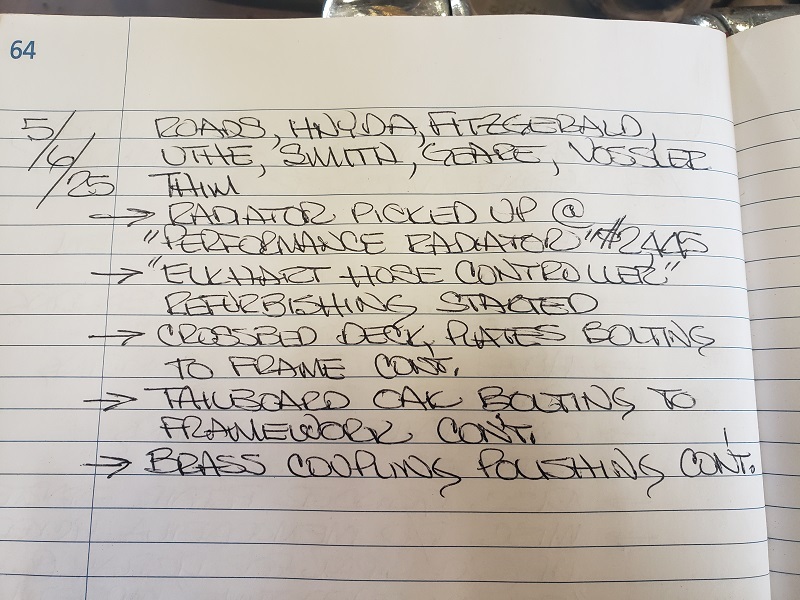 64
5/6/25
ROADS, HNYDA, FITZGERALD,
UTHE, SMITH, GEARE, VOSSLER
→ RADIATOR PICKED UP @
"PERFORMANCE RADIATOR" #2445
→ "ELKHART HOSE CONTROLLER"
REFURBISHING STARTED
→ CROSSBED DECK PLATES BOLTING
TO FRAME CONT.
→ TAILBOARD OAK BOLTING TO
FRAMEWORK CON'T.
→ BRASS COUPLING POLISHING CON'T.